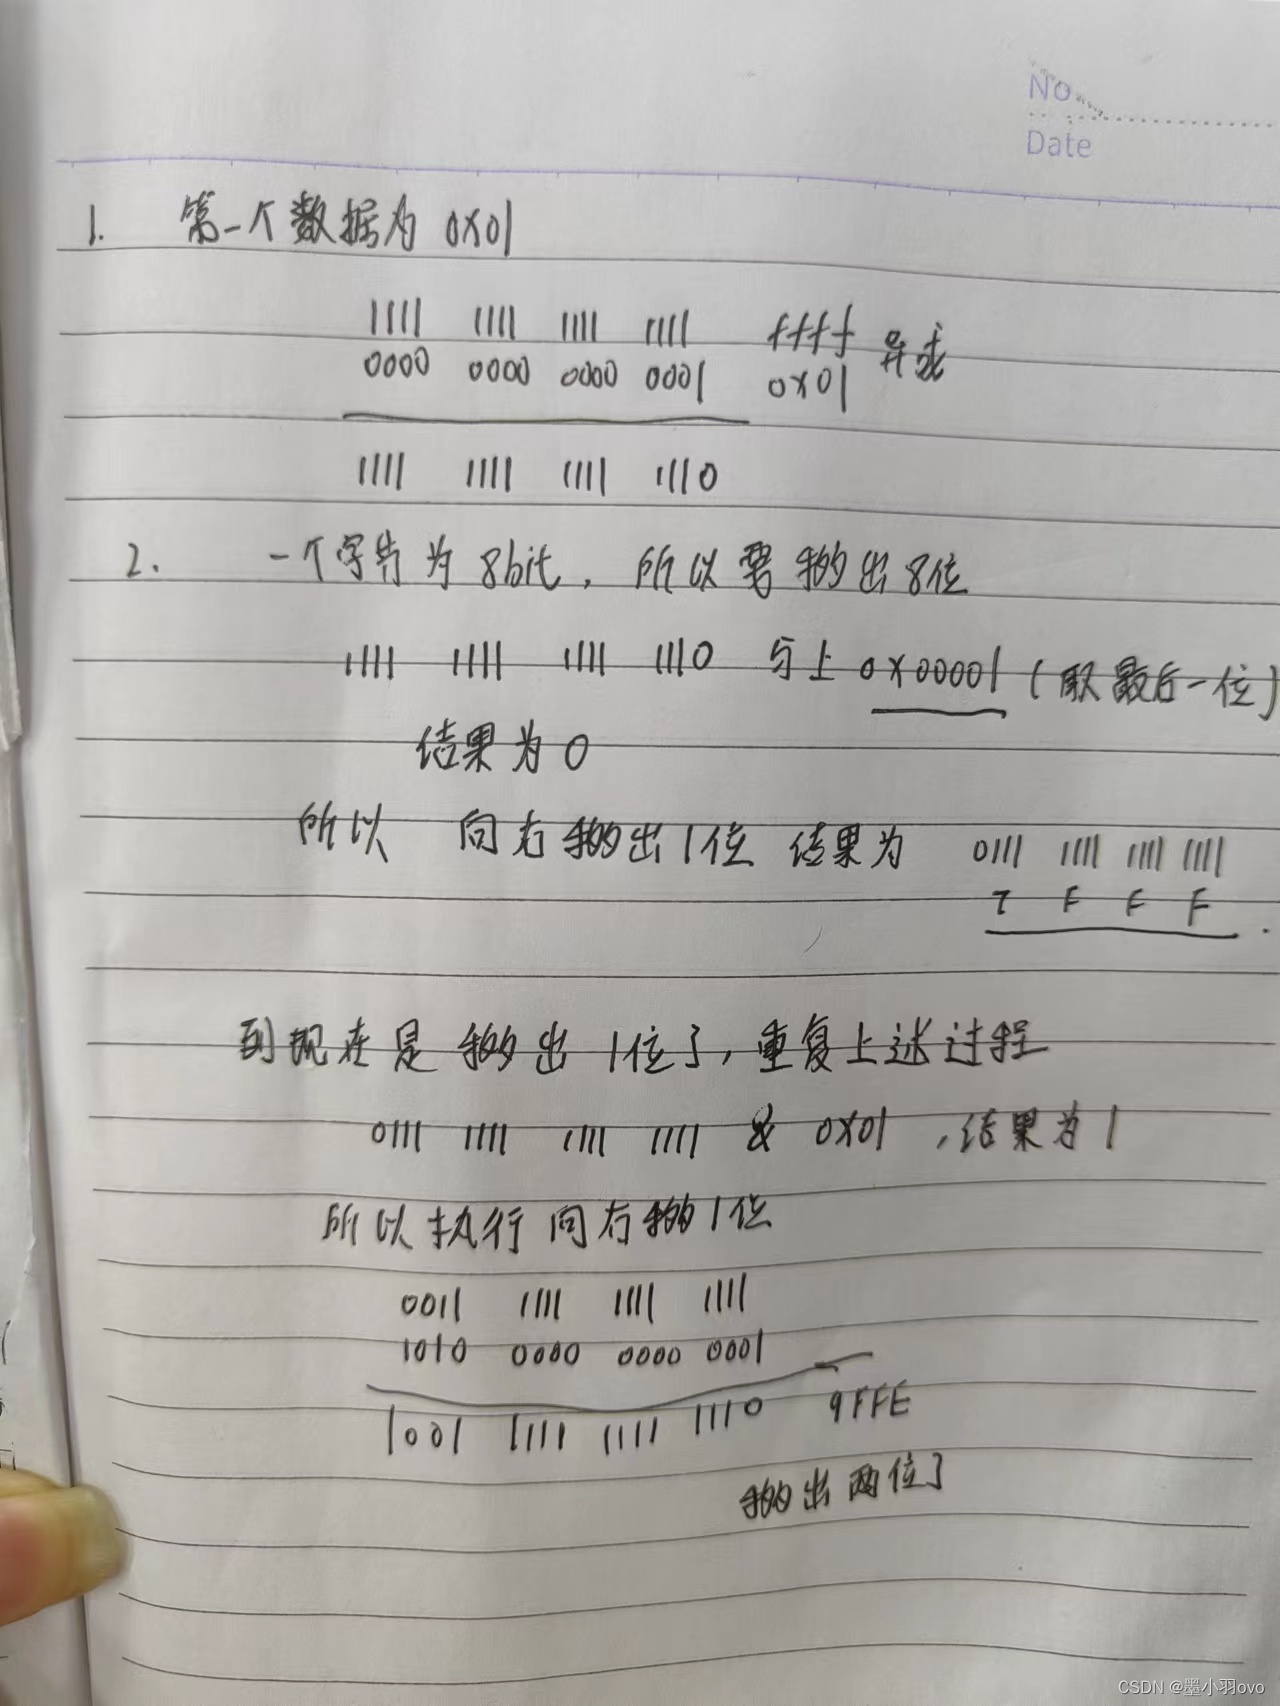 No.
Date
1. 第一个数据为 0x01
1111 1111 1111 1111 ffff 异或
0000 0000 0000 0001 0x01
1111 1111 1111 1110
2. 一个字节为8bit, 所以要挪出8位
1111 1111 1111 1110 与上 0x00001 (取最后一位)
结果为0
所以 向右挪出1位 结果为 0111 1111 1111 1111
7 F F F
到现在是挪出1位了, 重复上述过程
0111 1111 1111 1111 & 0x01 , 结果为1
所以执行向右挪1位
0011 1111 1111 1111
1010 0000 0000 0001
1001 1111 1111 1110 9FFE
挪出两位了
CSDN @墨小羽ovo